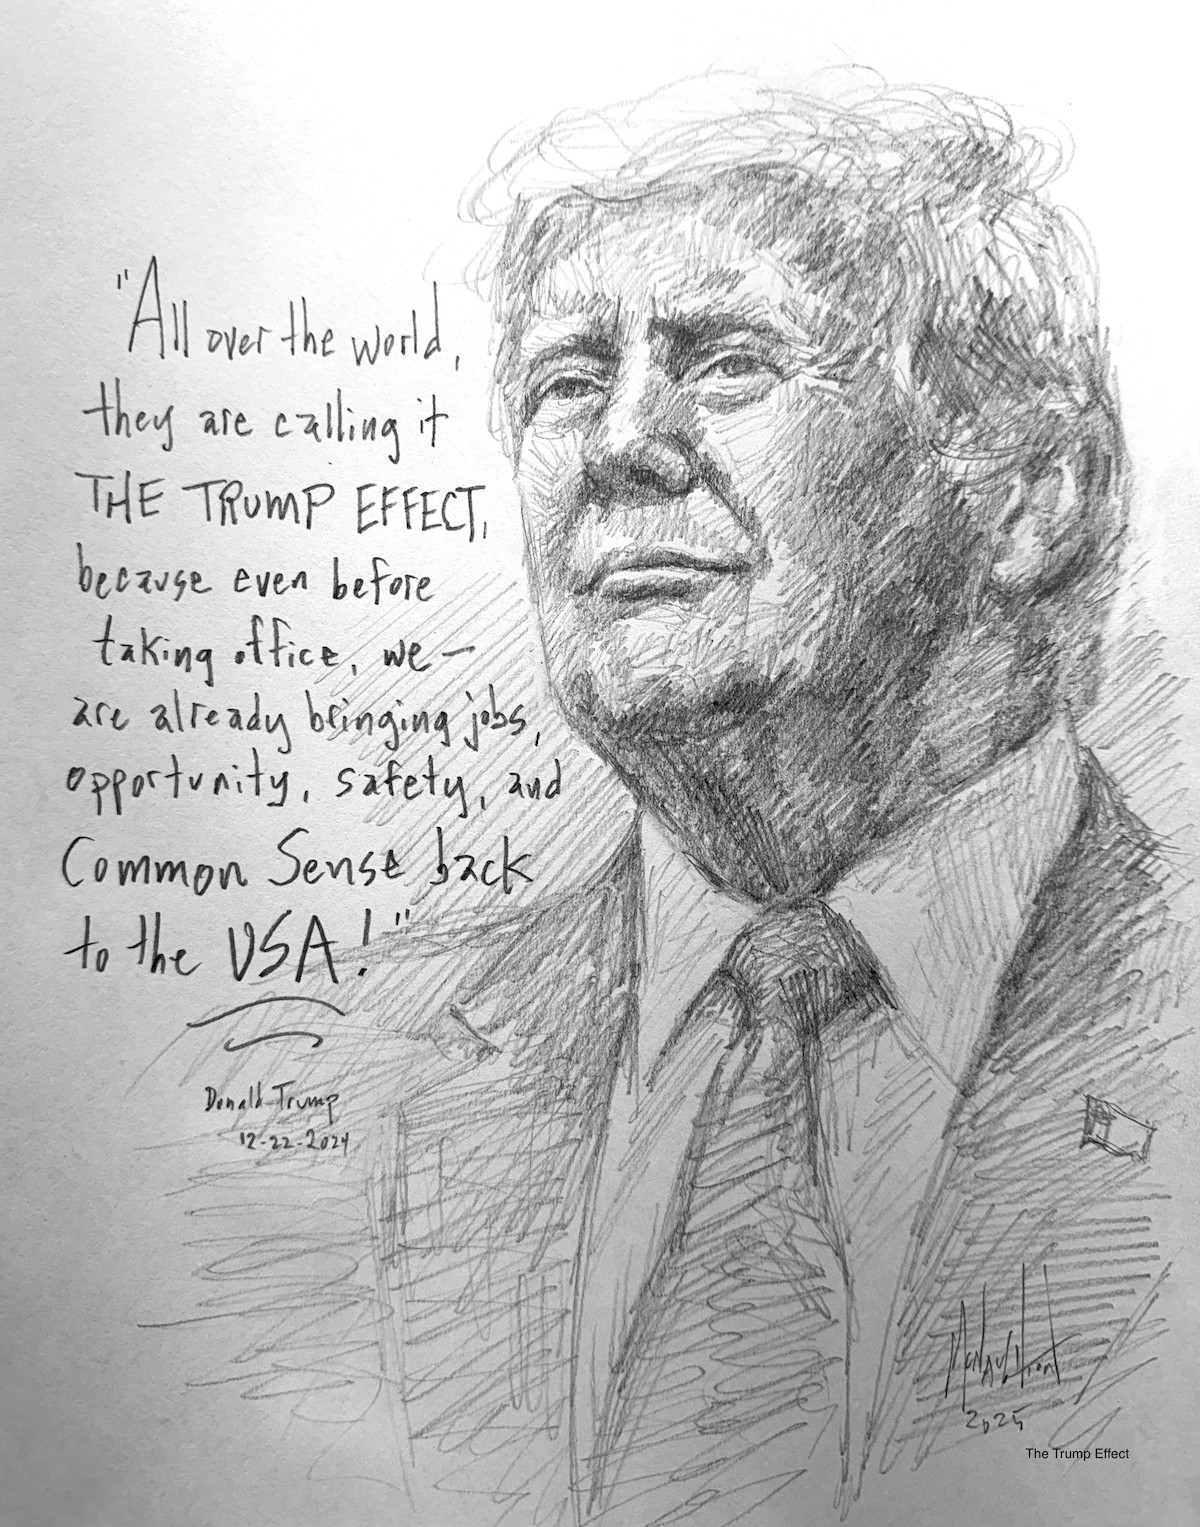 "All over the world,
they are calling it
THE TRUMP EFFECT,
because even before
taking office, we —
are already bringing jobs,
opportunity, safety, and
Common Sense back
to the USA!"
Donald Trump
12-22-2024
2025
The Trump Effect